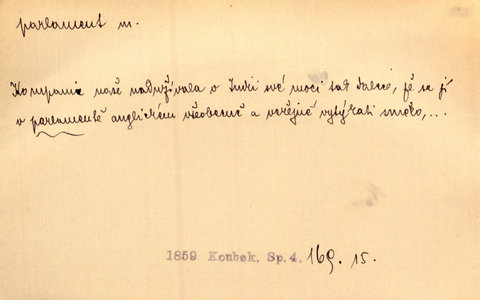 parlament m.
Kompanie naše nadužívala v Indii své moci tak dalece, že se jí
v parlamentě anglickém všeobecně a veřejně vytýkati smělo,...
1859 Koubek, Sp. 4. 169. 15.